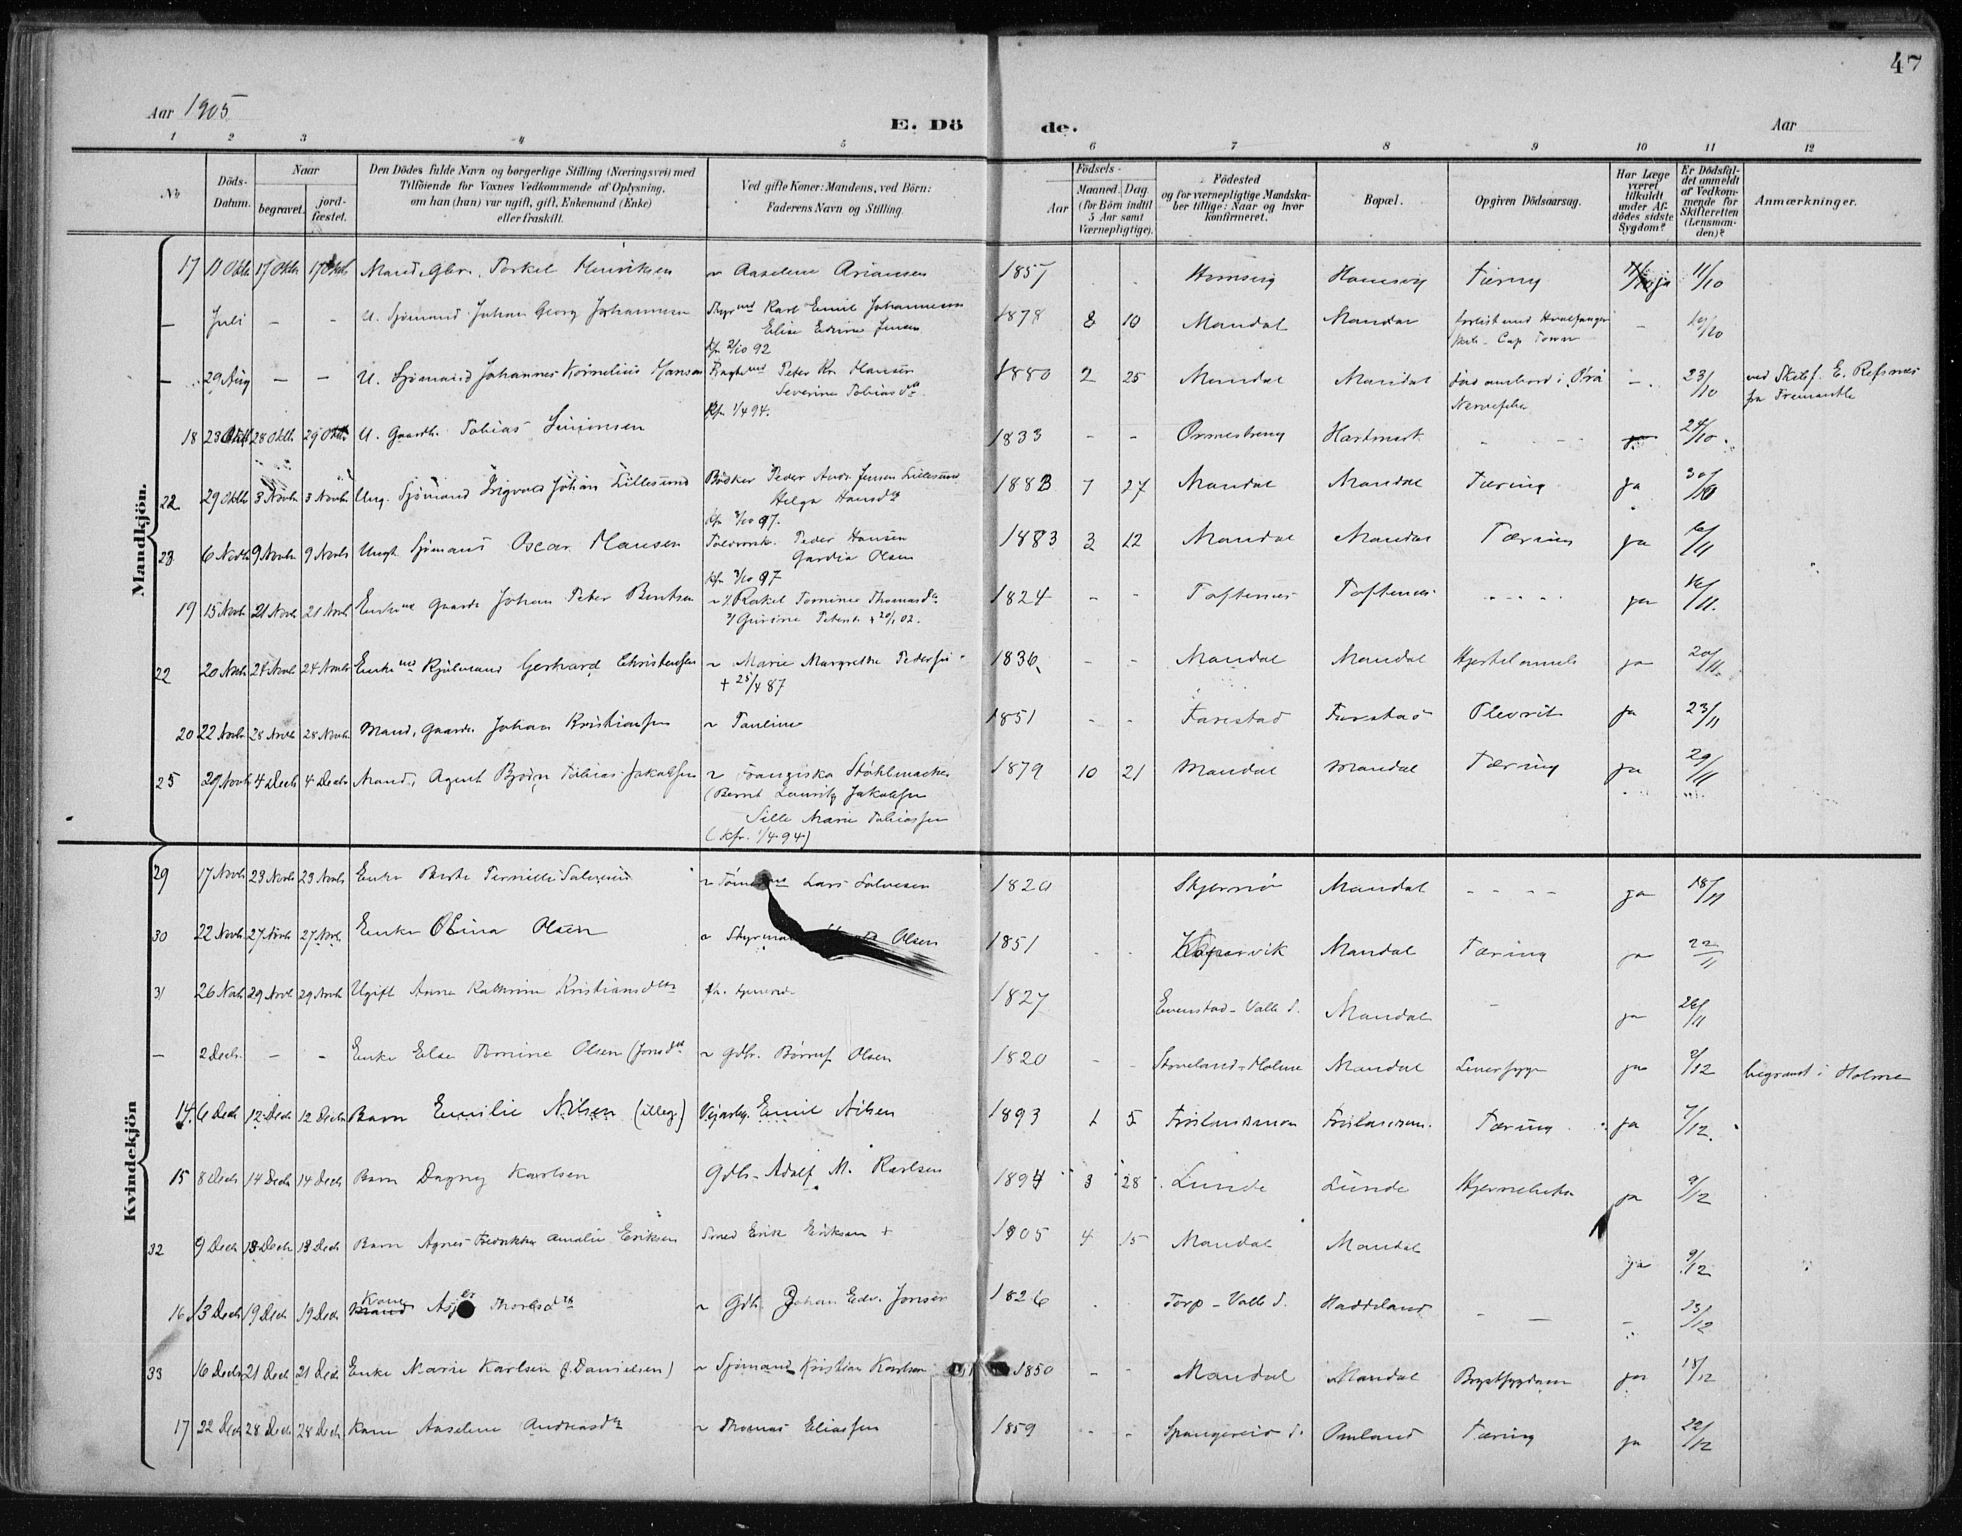 47
Aar 1905
E. Dö de.
Aar
1 2 3 4 5 6 7 8 9 10 11 12
No
Döds-Datum.
Naar
begravet.
jord-fæstet.
Den Dödes fulde Navn og borgerlige Stilling (Næringsvei) med
Tilföiende for Voxnes Vedkommende af Oplysning,
om han (hun) var ugift, gift, Enkemand (Enke)
eller fraskilt.
Ved gifte Koner: Mandens, ved Börn:
Faderens Navn og Stilling.
Födsels-
Aar
Maaned. Dag
(for Börn indtil
5 Aar samt
Værnepligtige).
Födested
og for værnepligtige Mandska-
ber tillige: Naar og hvor
konfirmeret.
Bopæl.
Opgiven Dödsaarsag.
Har Læge
været
tilkaldt
under Af-
dödes sidste
Sygdom?
Er Dödsfal-
det anmeldt
af Vedkom-
mende for
Skifteretten
(Lensman-
den)?
Anmærkninger.
Mandkjön.
17 11 Oktb 17 Oktb 17 Oktb Mand, Gbr. Torkel Henriksen ~ Aaselene 1857 Tæring ja 11/10
— Juli — - U. Sjömand Johan Georg Johannesen Styrmd Karl Emil Johannesen 1878 8 10 Mandal Mandal forlist med Hvalfanger — 19/10
Elise Jensen
kfr 2/10 92
Cap Town
— 29 Aug — — U. Sjömand Johannes Kornelius Hansen Peter Kr. Hansen 1880 2 25 Mandal Mandal — 23/10 ved Skibsf. E. Refsnes
Severine Tobiasdtr
fra Fremantle
Kfr. 1/4 94.
18 23 Oktb 28 Oktb 29 Oktb U. Gaardb. Tobias Simonsen 1833 - - Ormestreng Hartmark 24/10
22 29 Oktb 3 Novb 3 Novb Ung. Sjömand Sigvard Johan Lillesund Bödker Peder Andr. Jensen Lillesund 1883 7 27 Mandal Mandal Tæring ja 30/10
Helga Hansdtr
kfr 3/10 97.
23 6 Novb 9 Novb 9 Novb Ungk. Sjömand Oscar Hansen Peder Hansen 1883 3 12 Mandal Mandal Tæring ja 6/11
Olsen
kfr 3/10 97
19 15 Novb 21 Novb 21 Novb Enkemd Gaardb Johan Peter Bentsen ~ 1/ Rakel Tomine Thomasdtr 1824 - - Toftenes Toftenes ja 16/11.
2/ Gurine Petersd. + 20/1 02.
22 20 Novb 24 Novb 24 Novb Enkemd Gerhard Christensen ~ Marie Margrethe Pedersen 1836 - - Mandal Mandal ja 20/11.
+ 25/4 87
20 22 Novb 28 Novb 28 Novb Mand, Gaardb. Johan Kristiansen ~ Pauline 1851 - - Farestad Farestad Plevrit ja 23/11
25 29 Novb 4 Decb 4 Decb Mand, Agent Björn Tobias Jakobsen ~ Franziska 1879 10 21 Mandal Mandal Tæring ja 29/11
(Bernt Lauritz Jakobsen
Sille Marie Tobiassen
(kfr. 1/4 94)
Kvindekjön
29 17 Novb 23 Novb 23 Novb Enke Berte Pernille Salvesen ~ Lars Salvesen 1820 Skjernö Mandal - - - - ja 18/11
30 22 Novb 27 Novb 27 Novb Enke Olina Olsen ~ Olsen 1851 - - Mandal Tæring ja 22/11
31 26 Novb 29 Novb 29 Novb Ugift Anna Kathrine Kristiansdtr 1827 Evenstad - Valle S. Mandal - ja 26/11
— 2 Decb. — - Enke Else Tomine Olsen (Jonsdtr ~ Gdbr. Olsen 1820 - - Stoveland - Holme Mandal ja 2/12 begravet i Holme
14 6 Decb 12 Decb 12 Decb Barn Emilie Nilsen (illeg.) Emil Nilsen 1893 1 5 Tæring. ja 7/12.
15 8 Decb 14 Decb 14 Decb Barn Dagny Karlsen Gdb. Adolf M. Karlsen 1894 3 28 Lunde Lunde ja 9/12
32 9 Decb 13 Decb 13 Decb Barn Agnes Fredrikke Amalie Eriksen Smed Erik Eriksen + 1905 4 15 Mandal Mandal ja 9/12
16 13 Decb 19 Decb 19 Decb Kone ~ Gdb. Johan Edv. Jonsen 1826 Torp - Valle S. Haddeland - — - 13/12
33 16 Decb 21 Decb 21 Decb Enke Marie Karlsen (f. Danielsen) ~ Sjömand Kristian Karlsen 1850 - - Mandal Mandal Brystsygdom ja 18/12
17 22 Decb 28 Decb 28 Decb Kone Aaselene Andreasdtr ~ Thomas Eliassen 1859 - - Spangereid S. Omland Tæring ja 22/12